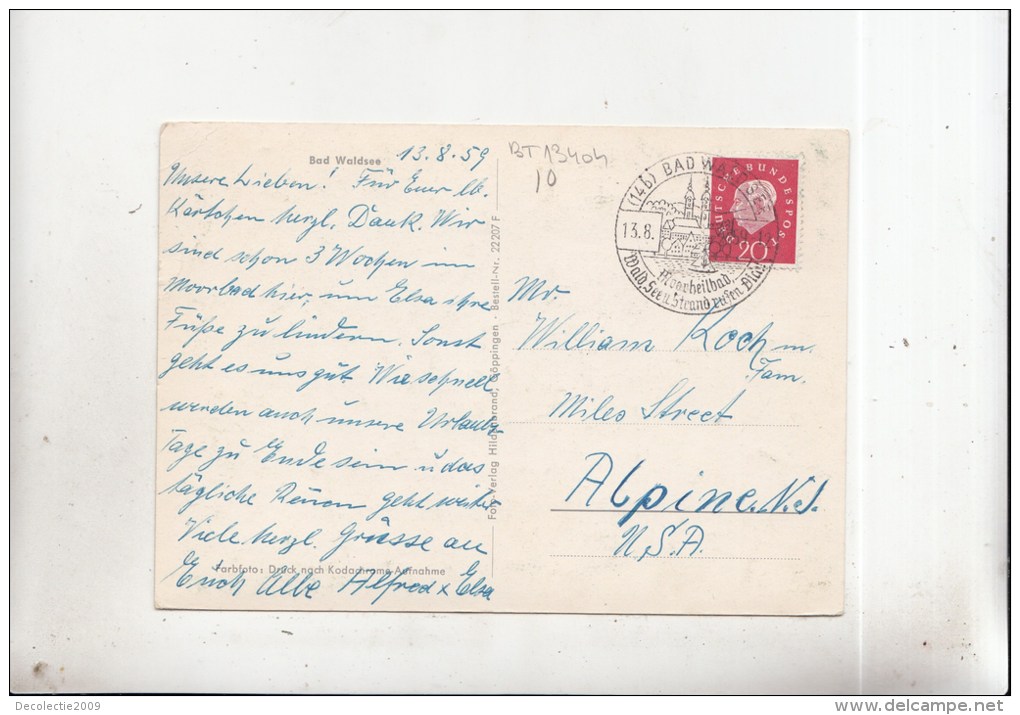 Bad Waldsee
13.8.59
BT 13404
10
Unsere Lieben! Für Euer lb.
Kärtchen herzl. Dank. Wir
sind schon 3 Wochen im
Moorbad hier, um Elsa ihre
Füße zu lindern. Sonst
geht es uns gut. Wie schnell
werden auch unsere Urlaubs
Tage zu Ende sein u das
tägliche Rennen geht weiter
Viele herzl. Grüsse an
Euch Alle Alfred & Elsa
Farbfoto: Druck nach Kodachrome-Aufnahme
Foto-Verlag Hildenbrand, Göppingen · Bestell-Nr. 22207 F
(14b) BAD WALDSEE
13.8.
Moorheilbad,
Wald, See u. Strand
DEUTSCHE BUNDESPOST
20
Mr.
William Koch m.
Fam.
Miles Street
Alpine. N.J.
U.S.A.
Decolectie2009
delcampe.net